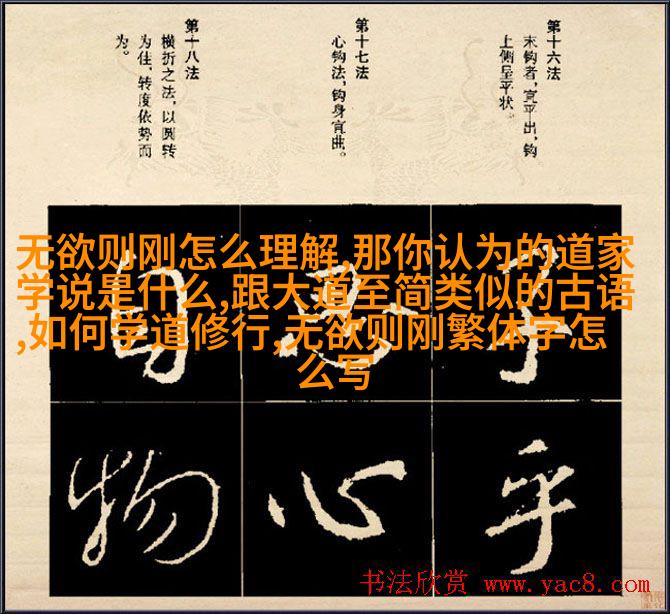 第十六法
末钩者,宜平出,钩
上侧呈平状
第十七法
心钩法,钩身宜曲。
第十八法
横折之法,以圆转
为佳、转度依势而
为。
无欲则刚怎么理解,那你认为的道家
学说是什么,跟大道至简类似的古语
,如何学道修行,无欲则刚繁体字怎
么写
乎
心
自
物
书法欣赏 www.yac8.com